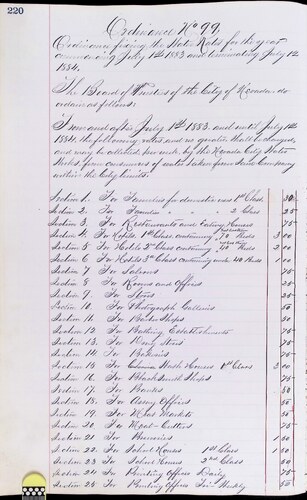 220
Ordinance No 99.
Ordinance fixing the Water Rates for the year
commencing July 1st 1883 and terminating July 1st
1884.
The Board of Trustees of the City of do
ordain as follows:
From and after July 1st 1883 and until July 1st
1884 the following rates and no greater shall be charged
and may be collected by the City Water
Works, from consumers of water taken from said Company
within the City limits.
Section 1. For Families for domestic use 1st Class 50
Section 2. For Families " " 2 Class 25
Section 3. For Restaurants and Eating Houses 75
Section 4 For Hotels 1st Class containing 70 Beds 3 00
Section 5 For Hotels 2d Class containing 40 Beds 2 00
Section 6 For Hotels 3d Class containing under 40 Beds 1 00
Section 7 For Saloons 75
Section 8 For Rooms and Offices 25
Section 9. For Stores 25
Section 10. For Photograph Galleries 75
Section 11. For Barber Shops 50
Section 12. For Bathing Establishments 75
Section 13. For Stores 75
Section 14. For Bakeries 75
Section 15 For China Wash Houses 1st Class 3 00
Section 16. For Blacksmith Shops 75
Section 17. For Banks 50
Section 18. For Assay Offices 50
Section 19. For Meat Markets 50
Section 20. For 75
Section 21 For Breweries 1 50
Section 22. For School Houses 1st Class 1 50
Section 23 For School Houses 2nd Class 50
Section 24 For Printing Offices Daily 75
Section 24 For Printing Offices Weekly 50